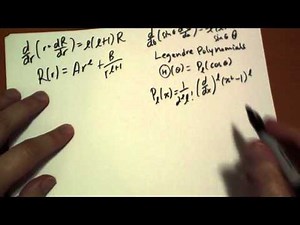 d/dr (r² dR/dr) = l(l+1) R
R(r) = Ar^l + B/r^(l+1)
d/dθ (sin θ
sin θ
Legendre Polynomials
Θ(θ) = P_l(cos θ)
P_l(x) = 1/(2^l l!) (d/dx)^l (x²-1)^l